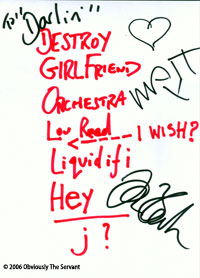 To "Darlin'"
DESTROY
GIRLFRIEND
ORCHESTRA
Lou Reed
I WISH?
Liquidifi
Hey
j ?
© 2006 Obviously The Servant